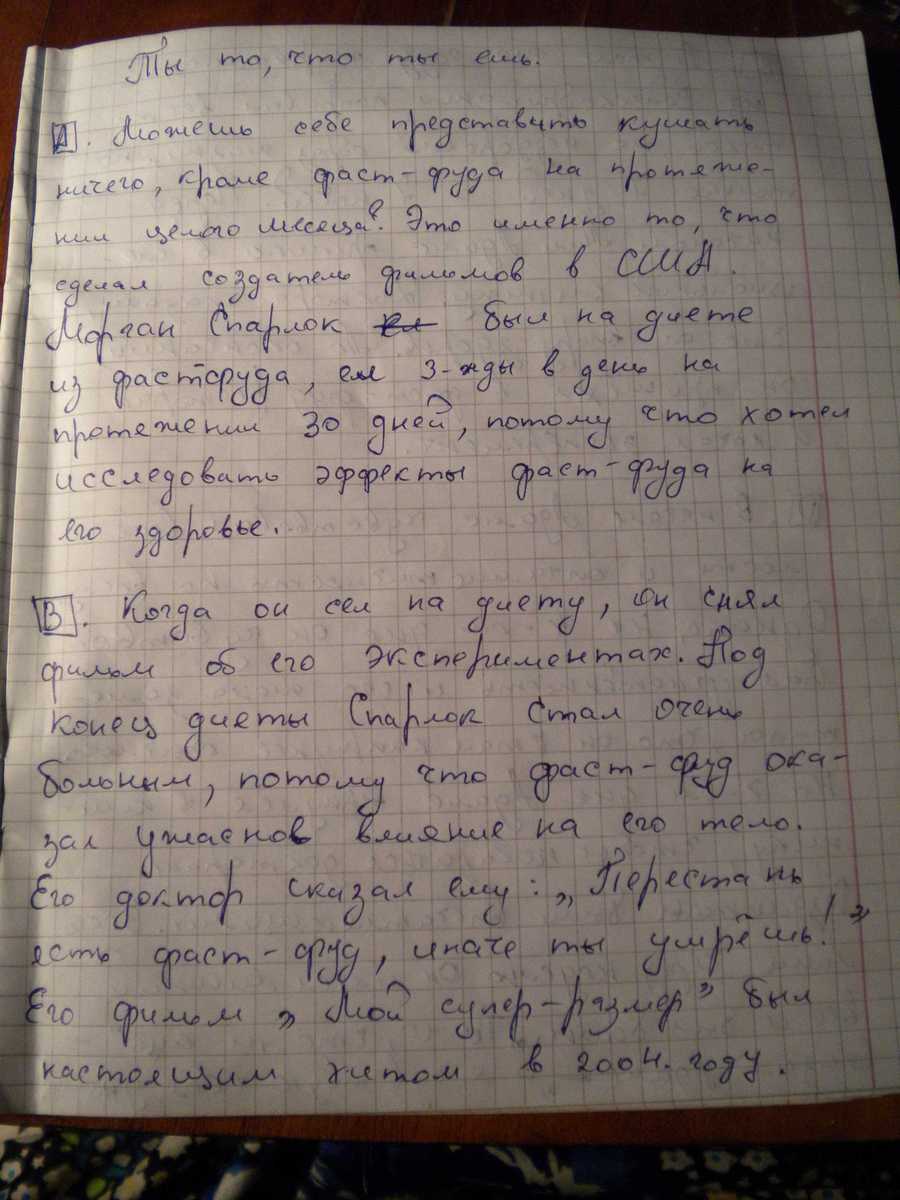 Ты то, что ты ешь.
А. Можешь себе представить кушать
ничего, кроме фаст-фуда на протяже-
нии целого месеца? Это именно то, что
сделал создатель фильмов в США.
Морган Спарлок был на диете
из фастфуда, ел 3-жды в день на
протяжении 30 дней, потому что хотел
исследовать эффекты фаст-фуда на
его здоровье.
В. Когда он сел на диету, он снял
фильм об его экспериментах. Под
конец диеты Спарлок стал очень
больным, потому что фаст-фуд ока-
зал ужасное влияние на его тело.
Его доктор сказал ему: „Перестань
есть фаст-фуд, иначе ты умрёшь!”
Его фильм „Мой супер-размер” был
настоящим хитом в 2004. году.